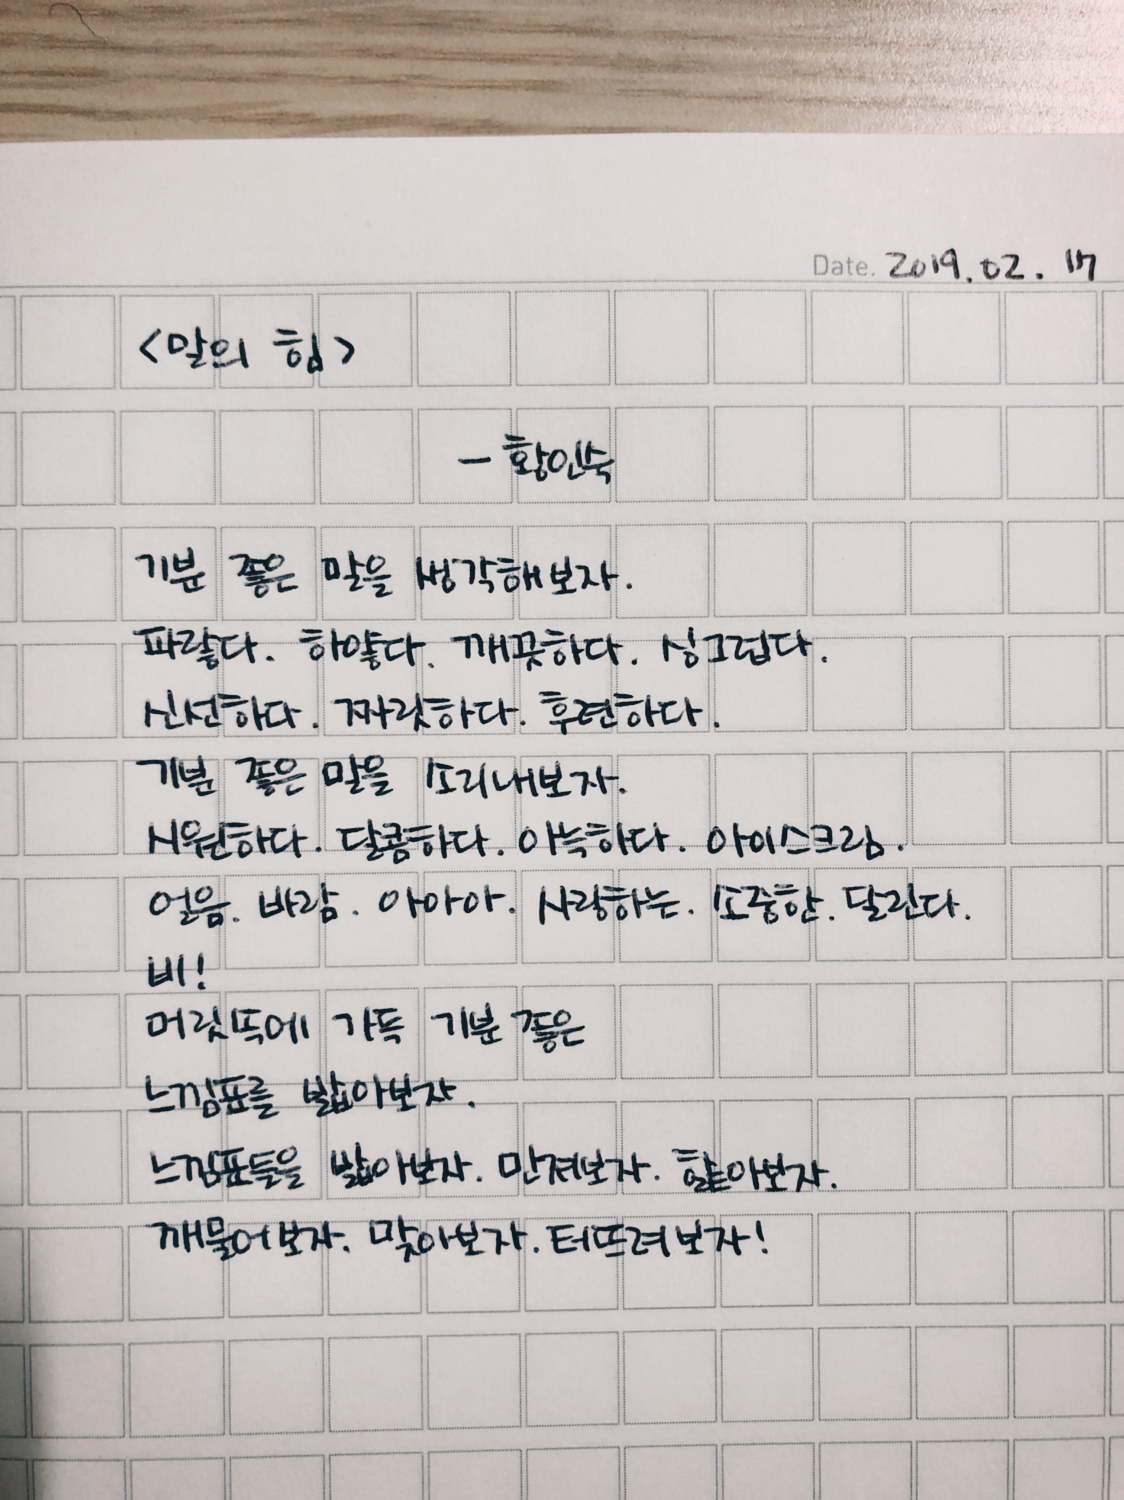 Date. 2019.02.17
<말의 힘>
- 황인숙
기분 좋은 말을 생각해보자.
파랗다. 하얗다. 깨끗하다. 싱그럽다.
신선하다. 짜릿하다. 후련하다.
기분 좋은 말을 소리내보자.
시원하다. 달콤하다. 아늑하다. 아이스크림.
얼음. 바람. 아아아. 사랑하는. 소중한. 달린다.
비!
머릿속에 가득 기분 좋은
느낌표를 밟아보자.
느낌표들을 밟아보자. 만져보자. 핥아보자.
깨물어보자. 맞아보자. 터뜨려보자!